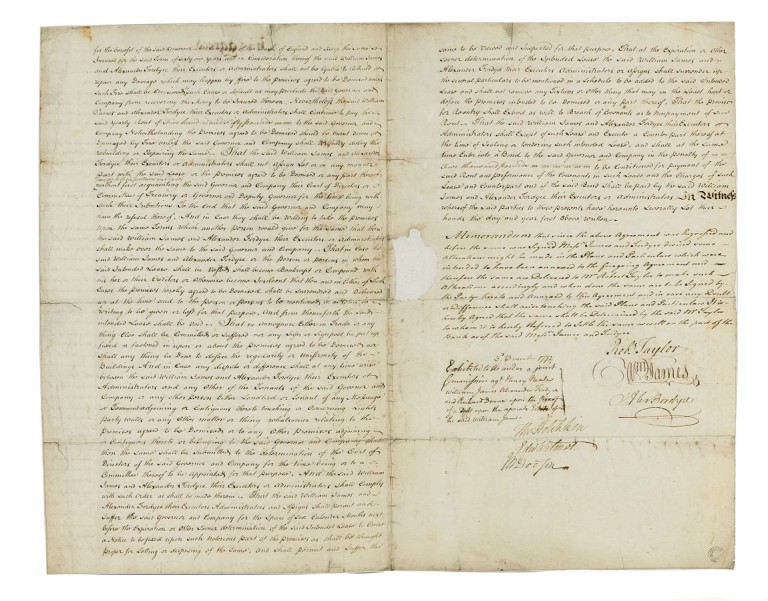 for the benefit of the said Governor and Company of the Bank of England and
Interest for the said Term of sixty one years
and Alexander Fordyce their Executors or Administrators shall not be
upon any Damage which may happen by Fire to the Premises agreed to be Demised unless
such Fire shall be Occasioned
Company from recovering
James and Alexander Fordyce their Executors or Administrators shall Continue to pay the
yearly Rent of to the said Governor and
Company Notwithstanding the Premises agreed to be Demised should be burnt down or
Damaged by Fire unless the said Governor and Company shall delay the
rebuilding or Repairing the same. That the said William James and Alexander
Fordyce their Executors or Administrators shall not Assign Let or
Part with the said Lease or the Premises agreed to be Demised or any part thereof
without first acquainting the said Governor and Company their Court of Directors or
Committee of Treasury or Governor and Deputy Governor for the time being with
such their Intentions To the End that the said Governor and Company may
have the refusal thereof. And in Case they shall be Willing to take the Premises
upon the same Terms which another person would give for the same that then
the said William James and Alexander Fordyce their Executors or Administrators
shall make over the same to the said Governor and Company. That in Case the
said William James and Alexander Fordyce or the person or persons in whom the
said Intended Lease shall be Vested shall become Bankrupt or Compound with
his her or their Creditors or Otherwise become Insolvent that then and in Either of such
Cases the Premises hereby agreed to be Demised shall be surrendred and delivered
up at the time and to the person or persons to be mentioned in a Notice in
Writing to be given or left for that purpose. And from thenceforth the said
intended Lease shall be void. That no annoyance Either in Trade or any
thing Else shall be Committed or Suffered nor any Sign or Signpost be put up
fixed or fastened in upon or about the Premises agreed to be Demised nor
shall any thing be done to deface the regularity or Uniformity of the
Buildings And in Case any dispute or difference shall at any time arise
between the said William James and Alexander Fordyce their Executors or
Administrators and any Other of the Tenants of the said Governor and
Company or any other person Either Landlord or Tenant of any Messuage
or Tenement adjoining or Contiguous thereto touching or Concerning Lights
Party walls or any Other matter or thing whatsoever relating to the
Premises agreed to be Demised or to any Other Premises adjoining
or Contiguous thereto or belonging to the said Governor and Company
then the same shall be Submitted to the determination of the Court of
Directors of the said Governor and Company for the time being or to a
Committee thereof to be Appointed for that purpose. And the said William
James and Alexander Fordyce their Executors or Administrators shall Comply
with such Order as shall be made therein. That the said William James and
Alexander Fordyce their Executors Administrators and Assigns shall permit and
Suffer the said Governor and Company for the Space of Six Calendar Months next
before the Expiration or Other Sooner determination of the said Intended Lease to Cause
a Notice to be fixed upon such notorious Part of the Premises as shall be thought
proper for Letting or disposing of the same, and shall permit and Suffer the
same to be Viewed and Inspected for that purpose. That at the Expiration or Other
sooner determination of the Intended Lease the said William James and
Alexander Fordyce their Executors Administrators or Assigns shall surrender up
the several particulars to be mentioned in a Schedule to be added to the said Intended
Lease and shall not remove any Fixtures or Other thing that may in the least hurt or
deface the Premises intended to be Demised or any part thereof. That the power
for Reentry shall Extend as well to Breach of Covenants as to Nonpayment of
Rent. That the said William James and Alexander Fordyce their Executors or
Administrators shall Accept of such Lease and Execute a Counterpart thereof at
the time of Sealing or tendring such intended Lease, and shall at the same
time Enter into a Bond to the said Governor and Company in the penalty of
thousand Pounds to be Conditioned for payment of the
said Rent and performance of the Covenants in such Lease and the Charges of such
Lease and Counterpart and of the said Bond shall be paid by the said William
James and Alexander Fordyce their Executors or Administrators. In Witness
whereof the said parties to these presents have hereunto Severally Set their
hands the day and year first above Written.
Memorandum that since the above Agreement was Ingrossed and
before the same was Signed Messrs James and Fordyce desired some
Alterations might be made in the Plans and Particulars which were
intended to have been annexed to the foregoing Agreement and
therefore the same are Delivered to Mr Robert Taylor to make such
Alterations accordingly and when done the same are to be Signed by
the Partys hereto and Annexed to this Agreement and in case any Doubt
or difference shall arise touching the said Plans and Particulars It is
hereby Agreed that the same shall be Determined by the said Mr Taylor
to whom it is hereby Referred to Settle the same as well on the part of the
Bank as of the said Messrs James and Fordyce
Robt Taylor
Wm James
Alexr Fordyce
1772
Exhibited to us under a joint
Commission agt Henry Neale
William James Alexander Fordyce
and Richard Down upon the Proof
of a Debt upon the separate Estate of
the said William James